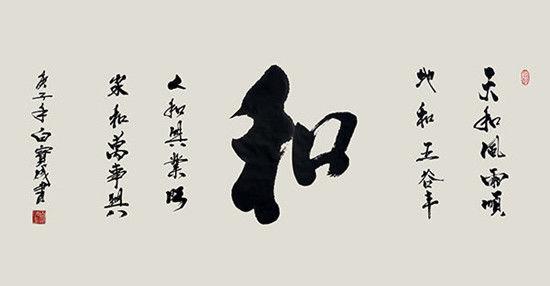 天和風雨順
地和五谷丰
和
人和興業
家和萬事興
庚子年白寶成書